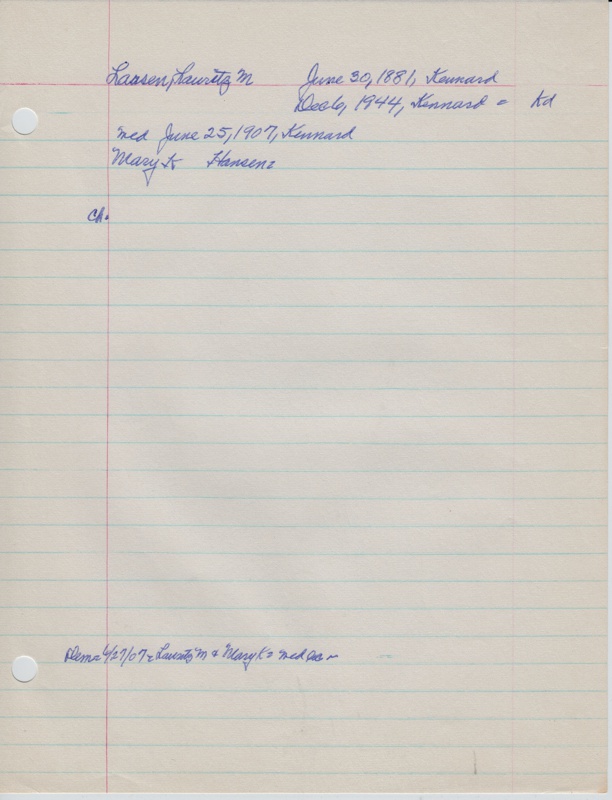 Larsen, Lauritz M June 30, 1881, Kennard
Dec 6, 1944, Kennard = Kd
med June 25, 1907, Kennard
Mary K Hansen =
Ch.
Dem = 6/27/07 = Lauritz M & Mary K = med